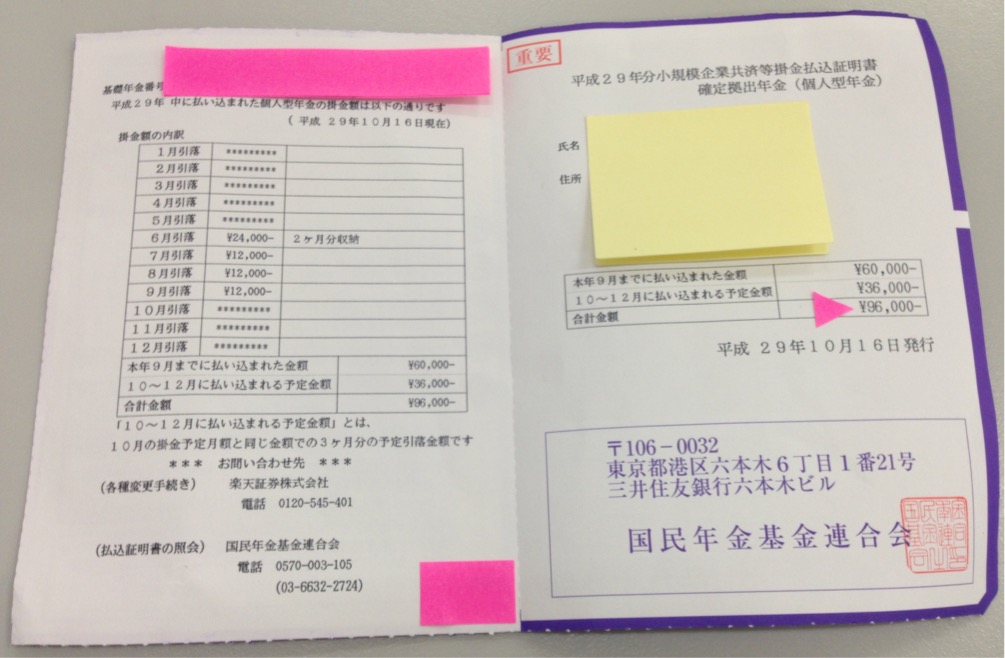 基礎年金番号
平成29年 中に払い込まれた個人型年金の掛金額は以下の通りです
( 平成 29年10月16日現在)
掛金額の内訳
1月引落 *********
2月引落 *********
3月引落 *********
4月引落 *********
5月引落 *********
6月引落 ¥24,000- 2ヶ月分収納
7月引落 ¥12,000-
8月引落 ¥12,000-
9月引落 ¥12,000-
10月引落 *********
11月引落 *********
12月引落 *********
本年9月までに払い込まれた金額 ¥60,000-
10〜12月に払い込まれる予定金額 ¥36,000-
合計金額 ¥96,000-
「10〜12月に払い込まれる予定金額」とは、
10月の掛金予定月額と同じ金額での3ヶ月分の予定引落金額です
*** お問い合わせ先 ***
(各種変更手続き) 楽天証券株式会社
電話 0120-545-401
(払込証明書の照会) 国民年金基金連合会
電話 0570-003-105
(03-6632-2724)
重要
平成29年分小規模企業共済等掛金払込証明書
確定拠出年金（個人型年金）
氏名
住所
本年9月までに払い込まれた金額 ¥60,000-
10〜12月に払い込まれる予定金額 ¥36,000-
合計金額 ¥96,000-
平成 29年10月16日発行
〒106−0032
東京都港区六本木6丁目1番21号
三井住友銀行六本木ビル
国民年金基金連合会